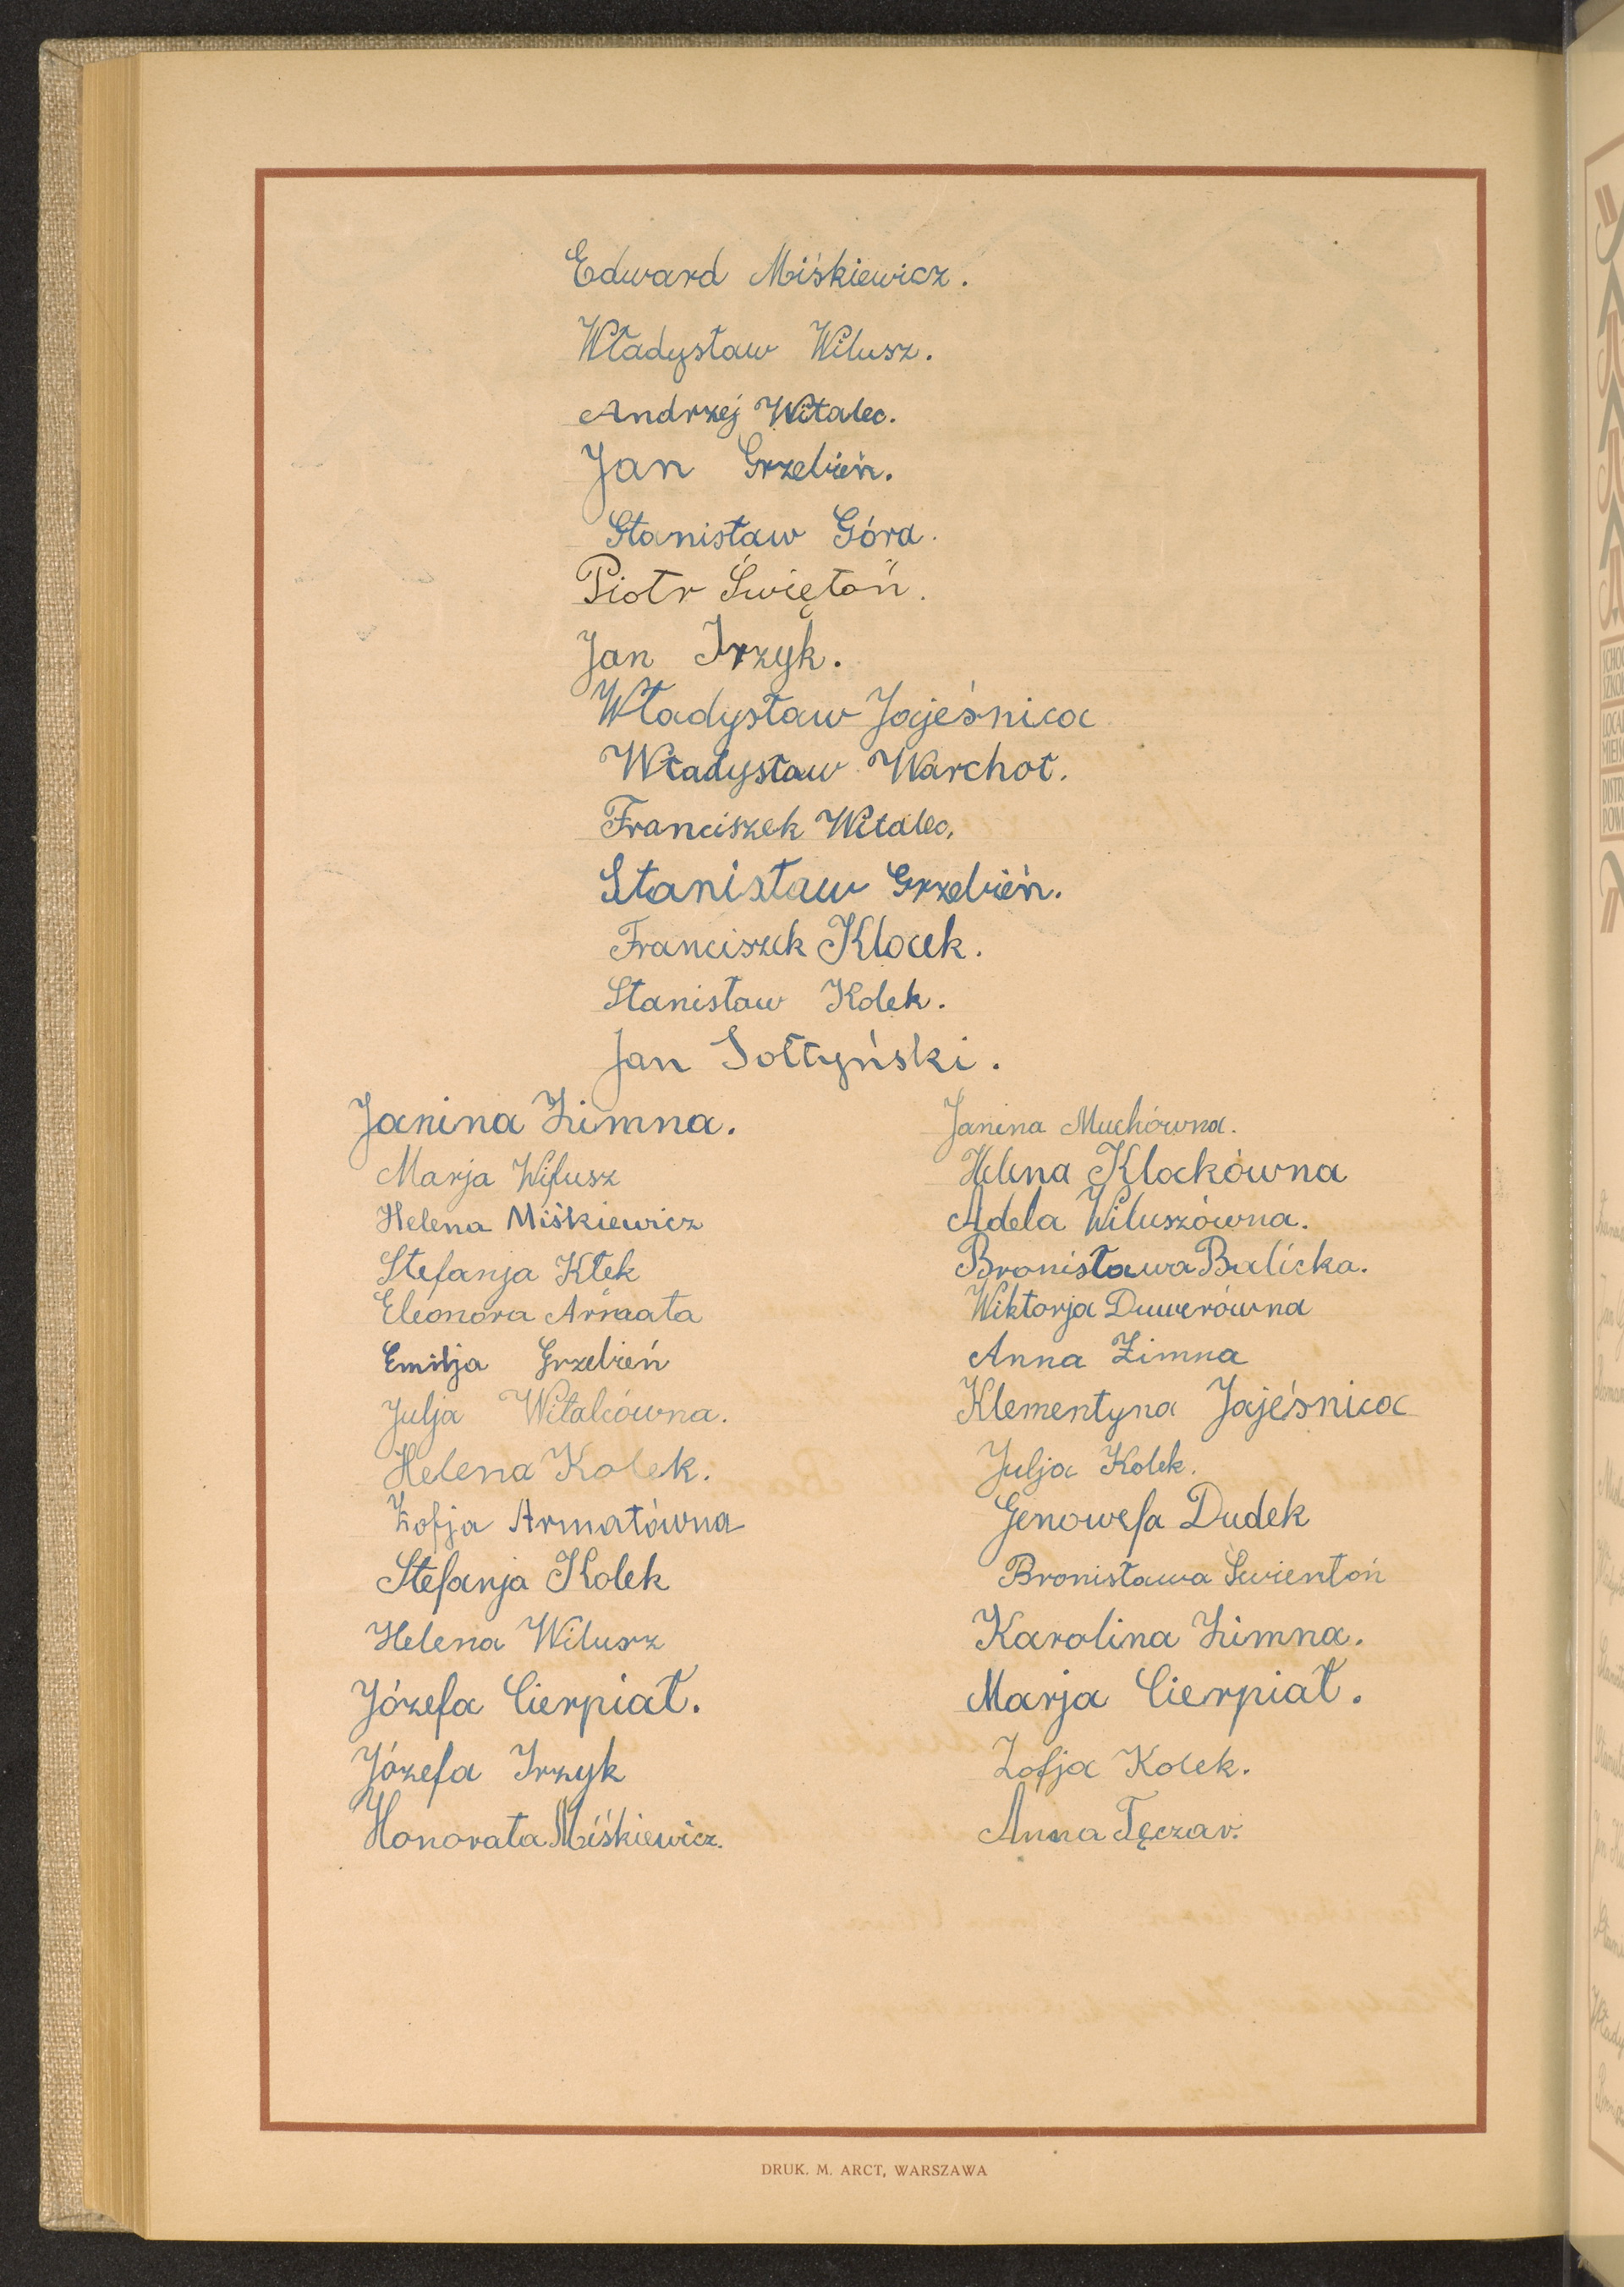 Edward Miśkiewicz.
Władysław Wilusz.
Andrzej Witalec.
Jan Grzebień.
Stanisław Góra.
Piotr Świętoń.
Jan Irzyk.
Władysław Jajeśnica
Władysław Warchoł.
Franciszek Witalec.
Stanisław Grzebień.
Franciszek Klocek.
Stanisław Kolek.
Jan Sołtyński.
Janina Zimna.
Marja Wilusz
Helena Miśkiewicz
Stefanja Kłek
Eleonora Armata
Emilja Grzebień
Julja Witalcówna.
Helena Kolek.
Zofja Armatówna
Stefanja Kolek
Helena Wilusz
Józefa Cierpiał.
Józefa Irzyk
Honorata Miśkiewicz.
Janina Muchówna.
Helena Klockówna
Adela Wiluszówna.
Bronisława Balicka.
Wiktorja Duwerówna
Anna Zimna
Klementyna Jajeśnica
Julja Kolek.
Genowefa Dudek
Bronisława Świentoń
Karolina Zimna.
Marja Cierpiał.
Zofja Kolek.
Anna Tęczar.
DRUK. M. ARCT, WARSZAWA